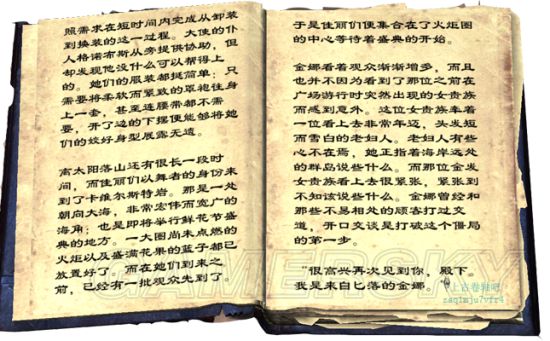 照需求在短时间内完成从卸装
到换装的这一过程。大使的仆
人格诺布斯从旁提供协助,但
却发现他没什么可以帮得上
的。她们的服装都挺简单:只
需要将柔软而紧致的罩袍往身
上一套,甚至连腰带都不需
要,开了边的下摆便能够将她
们的姣好身型展露无遗。
离太阳落山还有很长一段时
间,而佳丽们以舞者的身份来
到了卡维尔斯特岩。那是一处
朝向大海,非常宏伟而宽广的
海角;也是即将举行鲜花节盛
典的地方。一大圈尚未点燃的
火炬以及盛满花果的篮子都已
放置好了。而在她们到来之
前,已经有一批观众先到了。
于是佳丽们便集合在了火炬圈
的中心等待着盛典的开始。
金娜看着观众渐渐增多,而且
也并不因为看到了那位之前在
广场游行时突然出现的女贵族
而感到意外。这位女贵族牵着
一位看上去非常年迈,头发短
而雪白的老妇人。老妇人有些
心不在焉,她正指着海岸远处
的群岛说些什么。而那位金发
女贵族看上去很紧张,紧张到
不知该说些什么。金娜曾经和
那些不易相处的顾客打过交
道,开口交谈是打破这个僵局
的第一步。
“很高兴再次见到你,殿下。
我是来自匕落的金娜。
上古卷轴吧
zaq1mju7vfr4
GAMERSKY